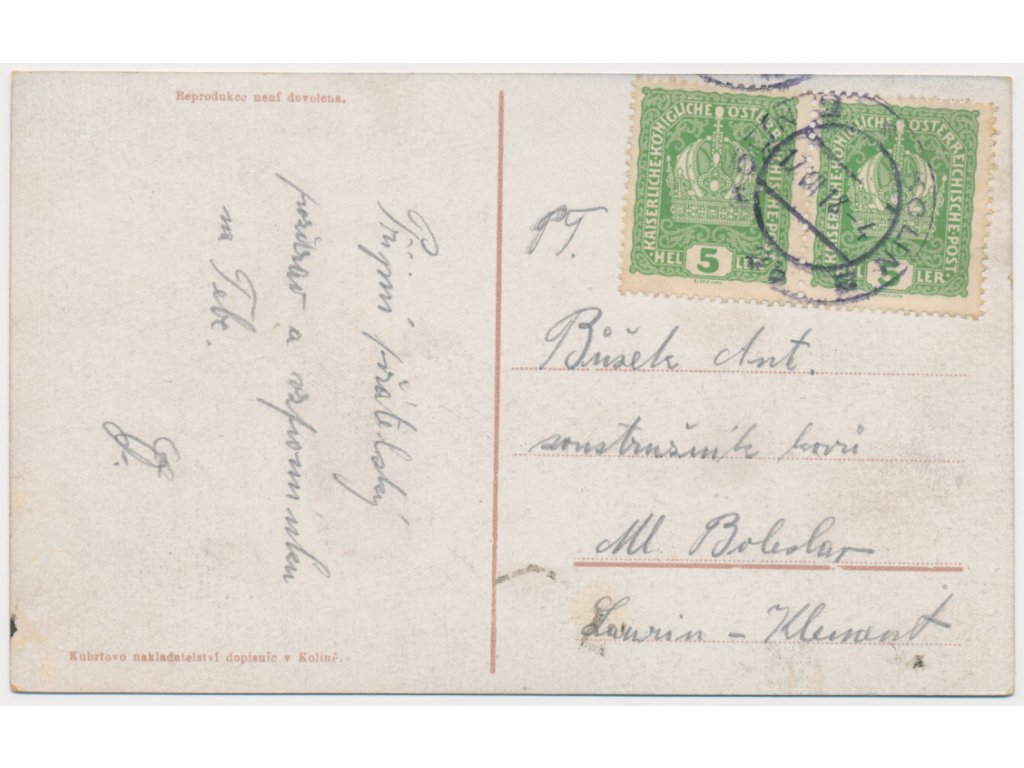 Reprodukce není dovolena.
Přijmi přátelský
pozdrav a vzpomínku
na Tebe.
PT.
Bůšek Ant.
soustružník kovů
Ml. Boleslav
Laurin – Klement
KAISERLICHE·KÖNIGLICHE·ÖSTERREICHISCHE·POST
HEL 5 LER
KAISERLICHE·KÖNIGLICHE·ÖSTERREICHISCHE·POST
HEL 5 LER
KOLÍN
Kubrtovo nakladatelství dopisnic v Kolíně.